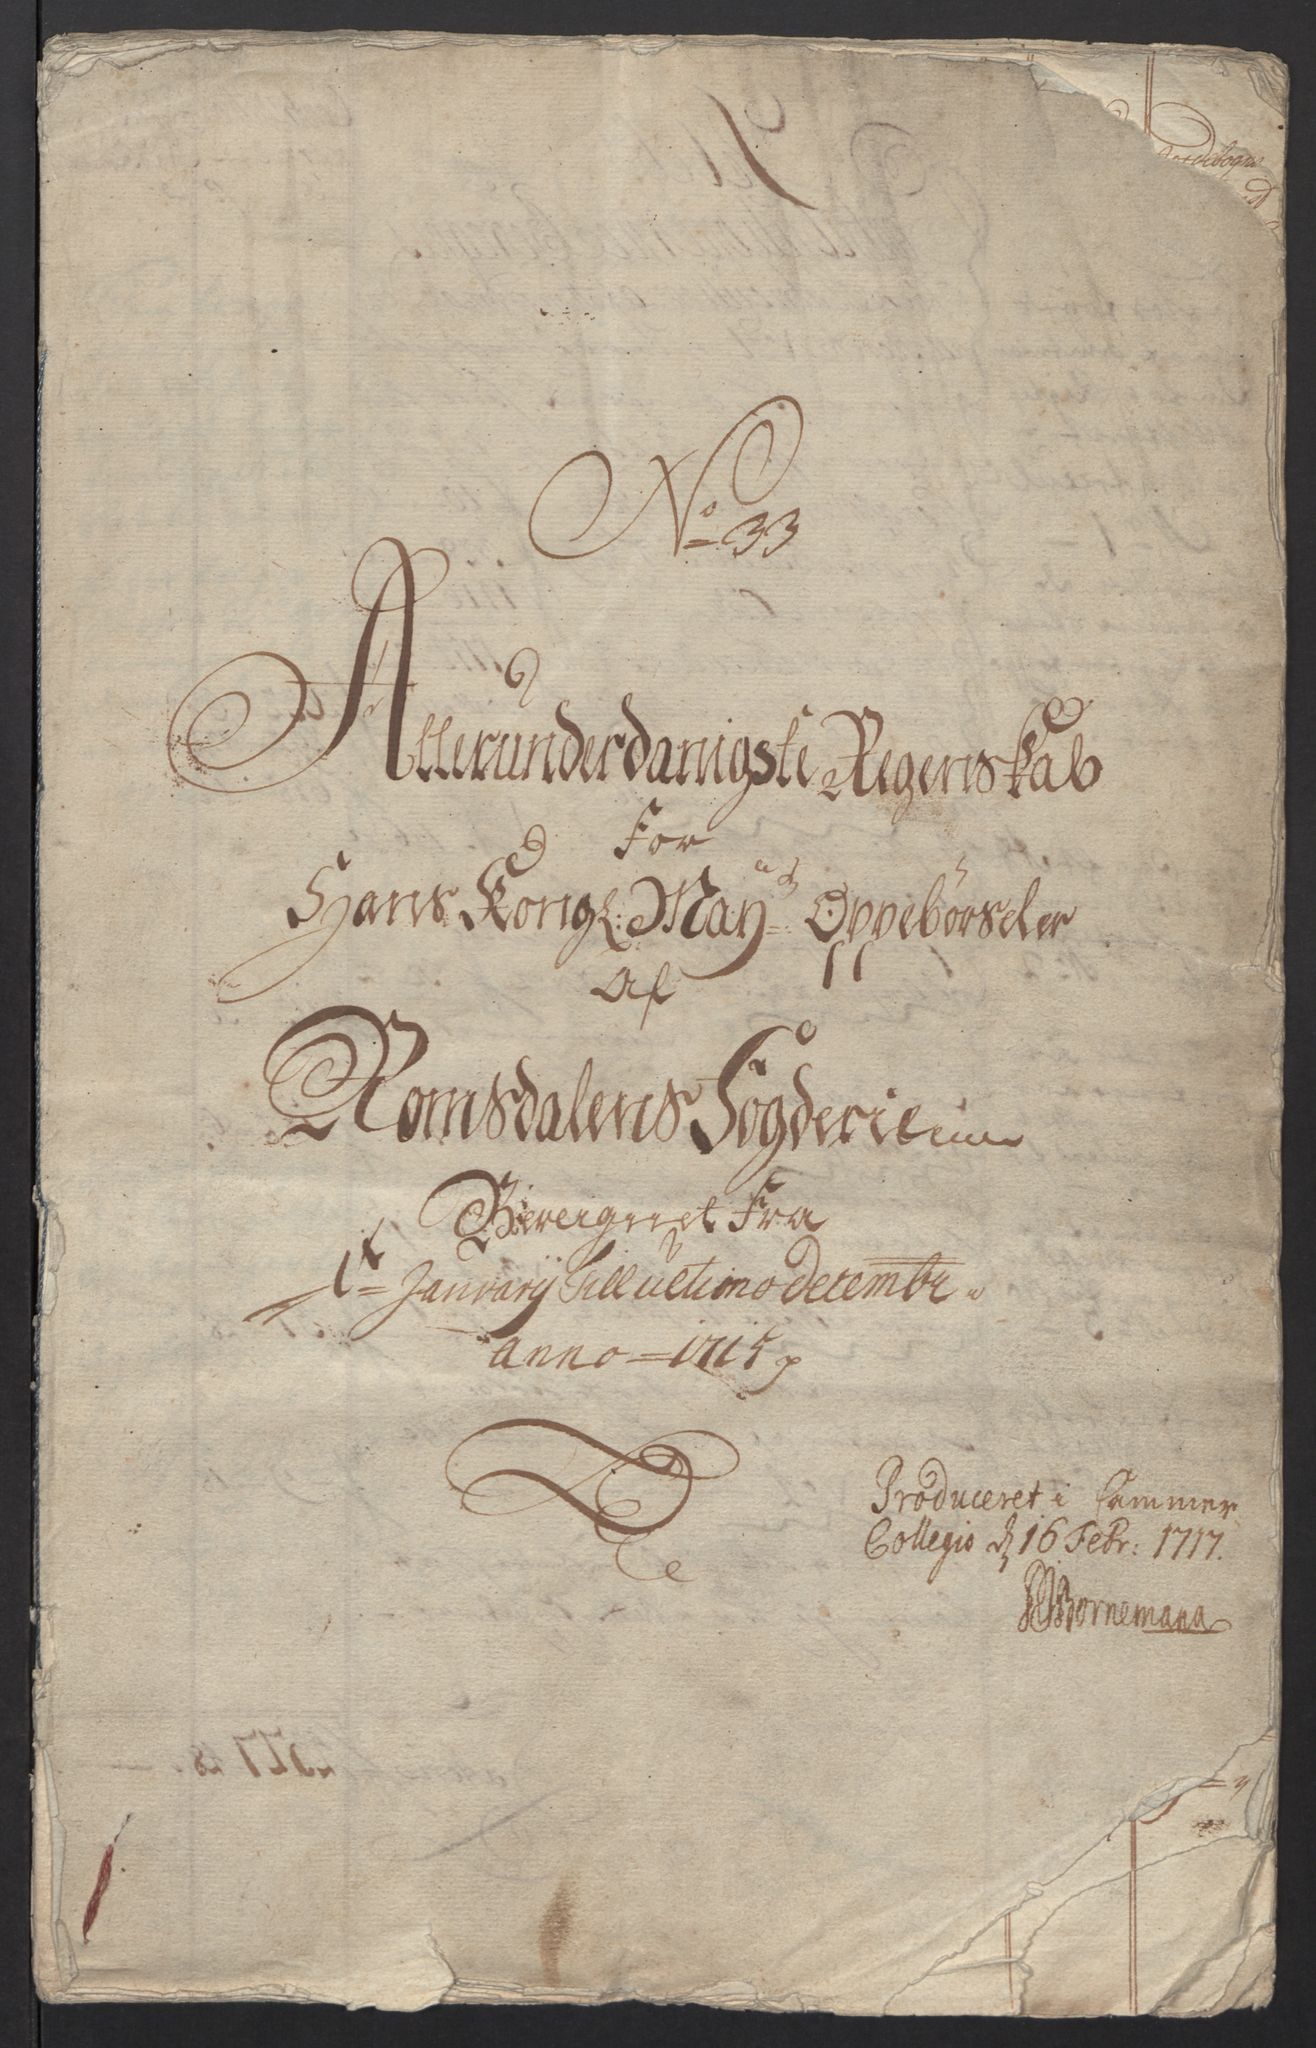 No 33
Allerunderdanigste Regenskab
For
Hans Kongl: Mayts Oppebörseler
Af
Romsdalens Fogderie
Bereignet Fra
1st January Till ultimo decembr
anno 1715
Produceret i Cammer
Collegio d 16 Febr: 1717.
Bornemann